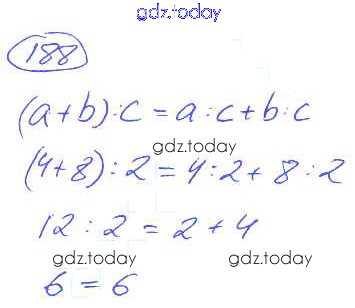 gdz.today
188
(a+b):c = a:c+b:c
gdz.today
(4+8):2 = 4:2+8:2
12:2 = 2+4
gdz.today gdz.today
6 = 6